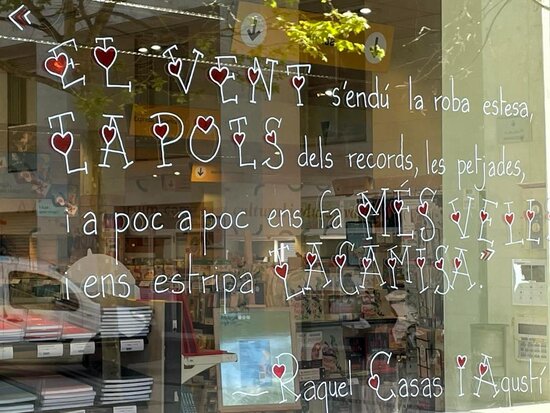 «EL VENT s'endú la roba estesa,
LA POLS dels records, les petjades,
i a poc a poc ens fa MÉS VELL
i ens estripa LA CAMISA.»
~Raquel Casas i Agustí